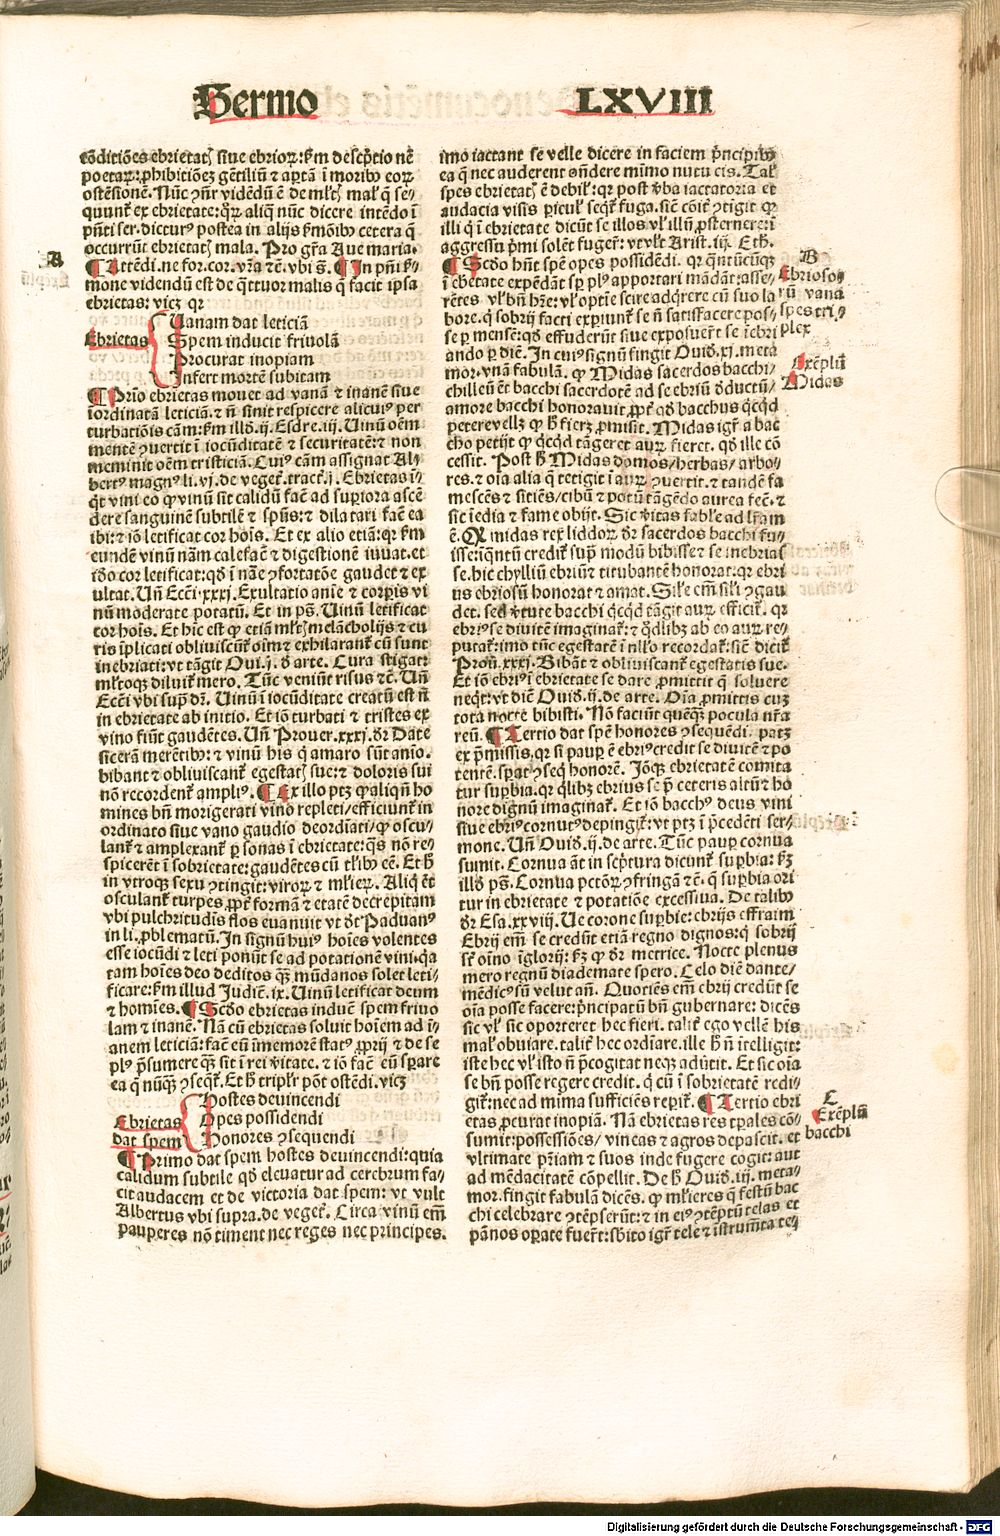 Sermo LXVIII
cōditiōes ebrietatꝭ siue ebrioꝝ: ẜm descp̄tio nē
poetaꝝ: ꝓhibitiōeʒ gētiliū ⁊ aptā ī moribꝰ eoꝝ
ostēsionē. Nūc ꝯn̄r vidēdū ē de ml̄tꝭ mal̓ q̄ se-
quunt̄ ex ebrietate: q̄ꝝ aliq̄ nūc dicere intēdo ī
pn̄ti ser. dicturꝰ postea in alijs ẜmōibꝰ cetera q̄
occurrūt ebrietatꝭ mala. Pro gr̄a Aue maria.
A
¶ Attēdi. ne for. cor. vr̄a ⁊ē. vbi s̄. ¶ In pn̄ti ẜ-
mone videndū est de q̄ttuor malis q̄ facit ipsa
ebrietas: vicꝫ qꝛ
Ebrietas
Uanam dat leticiā
Spem inducit friuolā
Procurat inopiam
Infert mortē subitam
¶ Prīo ebrietas mouet ad vanā ⁊ inanē siue
īordinatā leticiā. ⁊ n̄ sinit respicere alicuiꝰ per
turbatiōis cām: ẜm illḋ. ij. Esdre. iij. Uinū oēm
mentē ꝯuertit ī iocūditatē ⁊ securitatē: ⁊ non
meminit oēm tristiciā. Cuiꝰ cām assignat Al-
bertꝰ magnꝰ li. vj. de veget̄. tract̄. j. Ebrietas ī-
q̄t vini eo ꝙ vinū sit calidū facit ad supīora ascē
dere sanguinē subtilē ⁊ spūs: ⁊ dilatari facit ea
ibi: ⁊ iō letificat cor hoīs. Et ex alio etiā: qꝛ ẜm
eundē vinū nām calefacit ⁊ digestionē iuuat. et
iḋo cor letificat: qḋ ī nāe ꝯfortatōe gaudet ⁊ ex
ultat. Un̄ Ecci. xxxj. Exultatio aīe ⁊ corpīs vi
nū moderate potatū. Et in ps̄. Uinū letificat
cor hoīs. Et hic est ꝙ etiā ml̄tꝭ melācholijs ⁊ cu
ris īplicati obliuiscūt̄ oīm ⁊ exhilarant̄ cū sunt
inebriati: vt tāgit Oui. j. ḋ arte. Cura stigat̄
ml̄toqꝫ diluit̄ mero. Tūc veniūt risus ⁊c̄. Un̄
Ecci vbi sup̄ dꝛ. Uinū ī iocūditate creatū est n̄
in ebrietate ab initio. Et iō turbati ⁊ tristes ex
vino fiūt gaudētes. Un̄ Prouer. xxxj. ḋꝛ Date
sicerā merētibꝰ: ⁊ vinū his q̄ amaro sūt anīo.
bibant ⁊ obliuiscant̄ egestatꝭ sue: ⁊ doloris sui
nō recordent̄ ampliꝰ. ¶ Ex illo ptꝫ ꝙ aliqn̄ ho
mines bn̄ morigerati vino repleti / efficiunt̄ in
ordinato siue vano gaudio deordīati / ꝙ oscu-
lant̄ ⁊ amplexant̄ ꝑ sonas ī ebrietate: q̄s nō re-
spicerēt ī sobrietate: gaudētes cū tl̄ibꝰ eē. Et ħ
in vtroqꝫ sexu ꝯtingit: viroꝝ ⁊ ml̓ieꝝ. Aliq̄ et̄
osculant̄ turpes ꝓpt̄ formā ⁊ etatē decrepitam
vbi pulchritudīs flos euanuit vt ḋt Paduanꝰ
in li. ꝓblematū. In signū huiꝰ hoīes volentes
esse iocūdi ⁊ leti ponūt se ad potationē vini. q̄a
tam hoīes deo deditos qꝫ̄ mūdanos solet leti-
ficare: ẜm illud Judiē. ix. Uinū letificat deum
⁊ homīes. ¶ Scḋo ebrietas induit spem friuo
lam ⁊ inanē. Nā cū ebrietas soluit hoīem ad ī-
anem leticiam: facit eū īmemorē statꝰ ꝓprij ⁊ de se
plꝰ p̄sumere qꝫ̄ sit ī rei v̓itate. ⁊ iō facit eū sꝑare
ea q̄ nūqꝫ̄ ꝯseqt̄. Et ħ tripl̓r pōt ostēdi. vicꝫ
Ebrietas
dat spem
Hostes deuincendi
Opes possidendi
Honores ꝯsequendi
¶ Primo dat spem hostes deuincendi: quia
calidum subtile qḋ eleuatur ad cerebrum fa-
cit audacem et de victoria dat spem: vt vult
Albertus vbi supra. de veget̄. Circa vinū em̄
pauperes nō timent nec reges nec principes.
imo iactant se velle dicere in faciem p̄ncipibꝰ
ea q̄ nec auderent on̄dere mīmo nutu eis. Tal̓
spes ebrietatꝭ ē debil̓: qꝛ post v̓ba iactatoria et
audacia visis picul̓ seqt̄ fuga. sicut cōit̓ ꝯtigit ꝙ
illi q̄ ī ebrietate dicūt se illos vl̓ illū ꝓsternere: ī
aggressu p̄mi solēt fugere: vt vl̓t Arist. iij. Eth.
B
Ebriosoꝝ
rū vana
spes tri-
plex
¶ Scḋo hn̄t spē opes possidēdi. qꝛ qn̄tūcūqꝫ
ī ebrietate expēdāt sꝑ plꝰ apportari mādāt: asse-
rētes vl̓ bn̄ hr̄e: vl̓ optīe scire adq̄rere cū suo la
bore. q̄ sobrij facti expiunt̄ se n̄ satisfacere pos-
se ꝑ mensē: qḋ effuderūt siue exposuerūt se īebri
ando ꝑ diē. In cuiꝰ signū fingit Ouiḋ. xj. meta
mor. vnā fabulā. ꝙ Midas sacerdos bacchi /
Exēplū
Midas
chilleū et̄ bacchi sacerdotē ad se ebriū ḋductū /
amore bacchi honorauit. ꝓpt̄ qḋ bacchus q̄cqḋ
peteret vellꝫ ꝙ ħ fierꝫ ꝓmisit. Midas igr̄ a bac
cho petijt ꝙ q̄cqḋ tāgeret auꝝ fieret. qḋ ille cō
cessit. Post ħ Midas domos / herbas / arbo-
res. ⁊ oīa alia q̄ tetigit ī auꝝ ꝯuertit. ⁊ tandē fa
mescēs ⁊ sitiēs / cibū ⁊ potū tāgēdo aurea fecit. ⁊
sic īedia ⁊ fame obijt. Sic v̓itas fabl̓e ad lr̄am
ē. Qꝛ midas rex liddoꝝ dꝛ sacerdos bacchi fu-
isse: iqn̄tū credit̄ sup̄ modū bibisse ⁊ se inebrias
se. hic chylliū ebriū ⁊ titubantē honorat: qꝛ ebri
us ebriosum honorat ⁊ amat. Sil̓e em̄ sil̓i ꝯgau
det. sed v̓tute bacchi q̄cqḋ tāgit auꝝ efficit̄. qꝛ
ebriꝰ se diuitē imaginat̄: ⁊ qḋlibꝫ ab eo auꝝ re-
putat̄: imo tūc egestatē ī nll̓o recordat̄: sicut dicit̄
Prou. xxxj. Bibāt ⁊ obliuiscant̄ egestatis sue.
Et iō ebriꝰ ī ebrietate se dare ꝓmittit q̄ soluere
neqt: vt dicit Ouiḋ. ij. de arte. Oīa ꝓmittis cuꝫ
tota nocte bibisti. Nō faciūt queqꝫ̄ pocula nr̄a
reū. ¶ Tertio dat spē honores ꝯsequēdi. patꝫ
ex p̄missis, qꝛ si paup̄ ē ebriꝰ credit se diuitē ⁊ po
tentē. sꝑat ꝯseq̄ honorē. Iōqꝫ ebrietatē comita
tur supbia. qꝛ q̄libꝫ ebrius se p̄ ceteris altū ⁊ ho
nore dignū imaginat̄. Et iō bacchꝰ deus vini
siue ebriꝰ cornutꝰ depingit̄: vt ptꝫ ī p̄cedēti ser-
mone. Un̄ Ouiḋ. ij. de arte. Tūc paup̄ cornua
sumit. Cornua āt in scp̄tura dicunt̄ supbia: ẜꝫ
illḋ ps̄. Cornua pctōꝝ ꝯfringā ⁊c̄. q̄ supbia ori
tur in ebrietate ⁊ potatiōe excessiua. De talibꝰ
dꝛ Esa. xxviij. Ue corone supbie: ebrijs effraim
Ebrij em̄ se credūt etiā regno dignos: q̄ sobrij
sūt oīno īglorij: ẜꝫ ꝙ dꝛ metrice. Nocte plenus
mero regnū diademate spero. Celo diē dante /
mēdicꝰ sū velut an̄. Quotiēs em̄ ebrij credūt se
oīa posse facere: p̄ncipatū bn̄ gubernare: dicēs
sic vl̓ sic oporteret hec fieri. talit̓ ego vellē his
mal̓ obuiare. talit̓ hec ordīare. ille ħ n̄ ītelligit:
iste hec vl̓ isto n̄ p̄cogitat neqꝫ adūtit. Et sic oīa
se bn̄ posse regere credit. q̄ cū ī sobrietatē redi-
git̄: nec ad mīma sufficiēs reperit̄. ¶ Tertio ebri
C
Exēplū
bacchi
etas ꝓcurat inopiā. Nā ebrietas res tꝑales cō-
sumit: possessiōes / vineas ⁊ agros depascit. et
vltimate pr̄iam ⁊ suos inde fugere cogit: aut
ad mēdacitatē cōpellit. De ħ Ouiḋ. iij. meta-
mor. fingit fabulā dicēs. ꝙ ml̓ieres q̄ festū bac
chi celebrare ꝯtēpserūt: ⁊ in eiꝰ ꝯtēptū telas et
pānos oꝑate fuerūt: sb̄ito igr̄ tele ⁊ īstrumēta te-
Digitalisierung gefördert durch die Deutsche Forschungsgemeinschaft - DFG